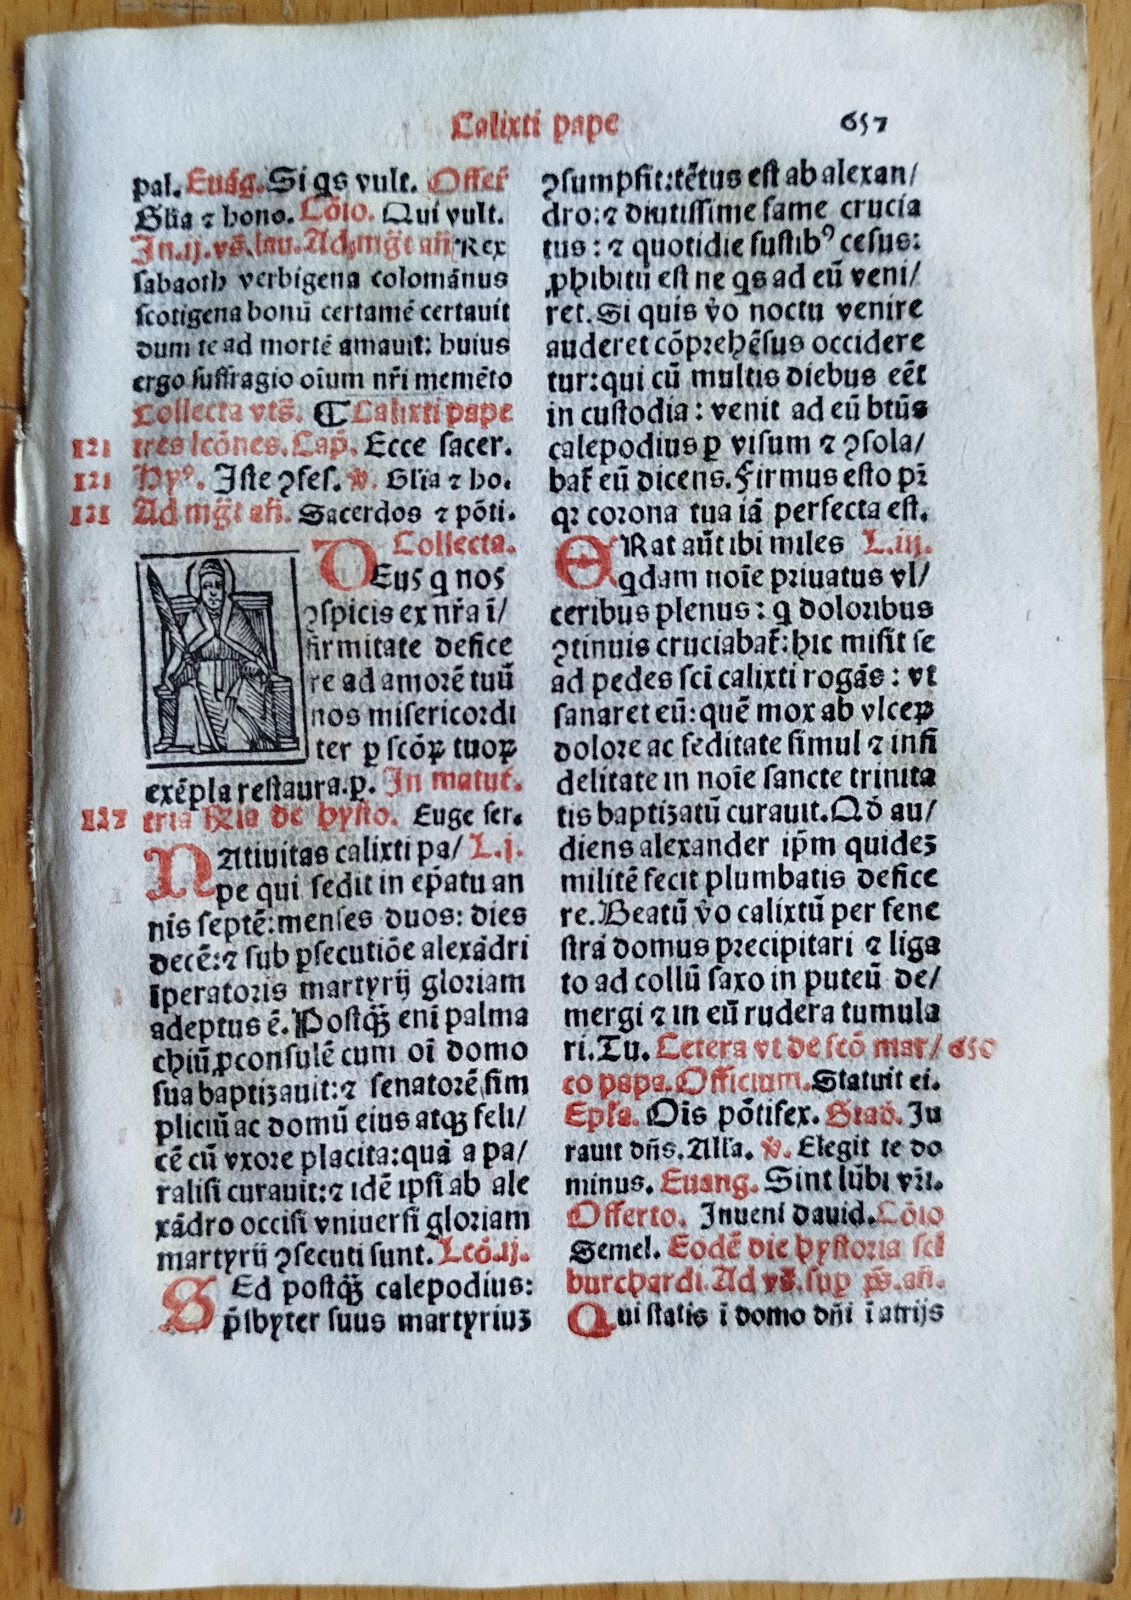 Calixti pape
657
pal. Euāg. Si qs vult. Offer̄
Gl̄ia ⁊ hono. Cōio. Qui vult.
In .ij. vs̄. lau. Ad mḡt an̄ Rex
sabaoth verbigena colomānus
scotigena bonū certamē certauit
dum te ad mortē amauit: huius
ergo suffragio oīum nr̄i memēto
Collecta vts̄. ⸿ Calixti pape
121 tres lcōnes. Cap̄. Ecce sacer.
121 Hyꝰ. Iste ꝯfes. ℣. Gl̄ia ⁊ ho.
121 Ad mḡt an̄. Sacerdos ⁊ pōti.
Collecta.
DEus q nos
ꝯspicis ex nr̄a ī/
firmitate defice
re ad amorē tuū
nos misericordi
ter ꝑ scōꝝ tuoꝝ
exēpla restaura. p. In matut̄.
127 tria hr̄ia de hysto. Euge ser.
NAtiuitas calixti pa/ L.j.
pe qui sedit in ep̄atu an
nis septē: menses duos: dies
decē: ⁊ sub ꝑsecutiōe alexādri
īperatoris martyrij gloriam
adeptus ē. Postqꝫ̄ enī palma
chiū ꝓconsulē cum oī domo
sua baptizauit: ⁊ senatorē sim
pliciū ac domū eius atqꝫ feli/
cē cū vxore placita: quā a pa/
ralisi curauit: ⁊ idē ipsi ab ale
xādro occisi vniuersi gloriam
martyrij ꝯsecuti sunt. Lcō.ij.
SEd postqꝫ̄ calepodius:
p̄sbyter suus martyriuꝫ
ꝯsumpsit: tētus est ab alexan/
dro: ⁊ diutissime fame crucia
tus: ⁊ quotidie fustibꝰ cesus:
ꝓhibitū est ne qs ad eū veni/
ret. Si quis v̊o noctu venire
auderet cōprehēsus occidere
tur: qui cū multis diebus eēt
in custodia: venit ad eū btūs
calepodius ꝑ visum ⁊ ꝯsola/
bat̄ eū dicens. Firmus esto pr̄
qꝛ corona tua iā perfecta est.
ERat aūt ibi miles L.iij.
qdam noīe priuatus vl/
ceribus plenus: q doloribus
ꝯtinuis cruciabat̄: hic misit se
ad pedes scī calixti rogās: vt
sanaret eū: quē mox ab vlceꝝ
dolore ac feditate simul ⁊ infi
delitate in noīe sancte trinita
tis baptizatū curauit. Qō au/
diens alexander ip̄m quideꝫ
militē fecit plumbatis defice
re. Beatū v̊o calixtū per fene
strā domus precipitari ⁊ liga
to ad collū saxo in puteū de/
mergi ⁊ in eū rudera tumula
ri. Tu. Cetera vt de scō mar/ 650
co papa. Officium. Statuit ei.
Epl̄a. Oīs pōtifex. Grad̄. Iu
rauit dn̄s. All̄a. ℣. Elegit te do
minus. Euang. Sint lūbi vr̄i.
Offerto. Inueni dauid. Cōio
Semel. Eodē die hystoria scī
burchardi. Ad vs̄. sup ps̄. an̄.
Qui statis ī domo dn̄i ī atrijs